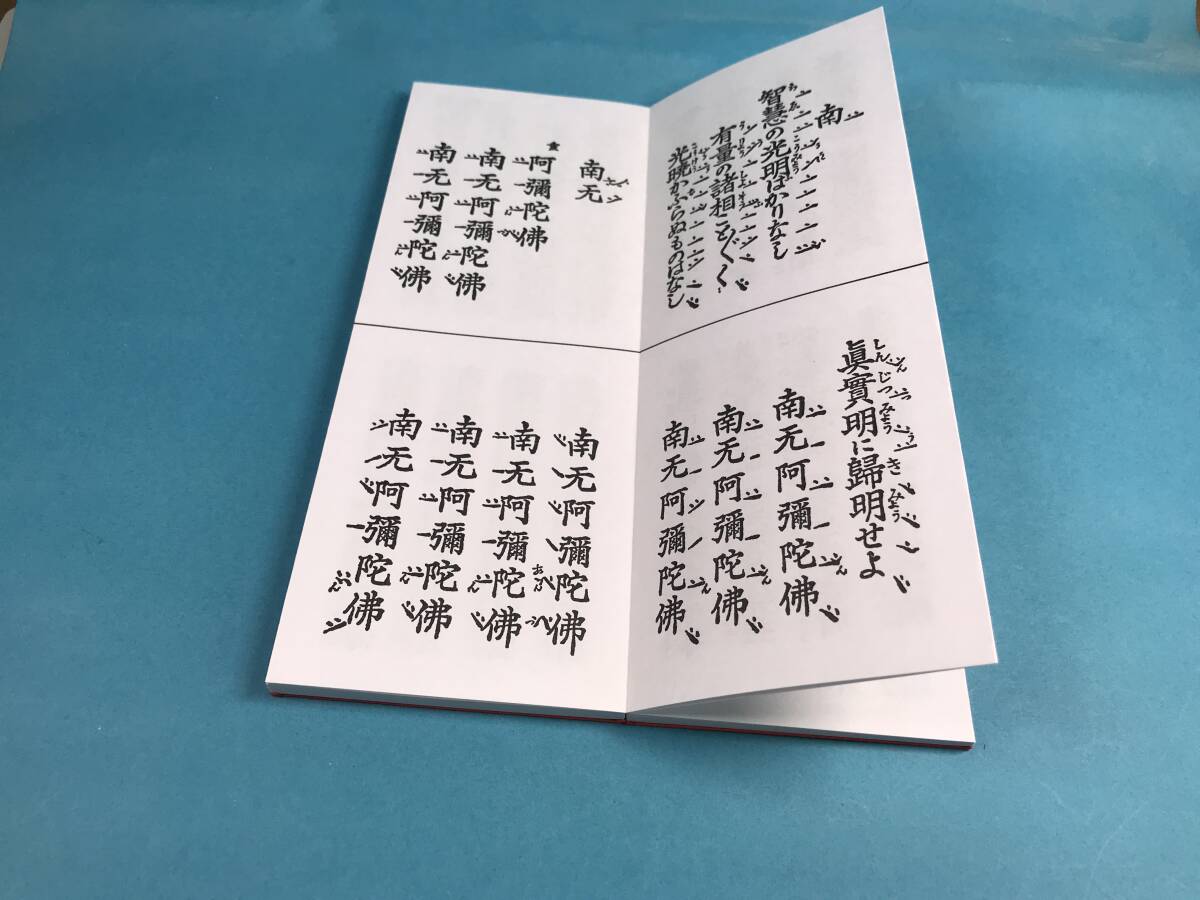 南
智慧の光明はかりなし
有量の諸相ことぐ〱
光暁かふらぬものはなし
眞實明に歸明せよ
南无阿彌陀佛
南无阿彌陀佛
南无阿彌陀佛
南无
★阿彌陀佛
南无阿彌陀佛
南无阿彌陀佛
南无阿彌陀佛
南无阿彌陀佛
南无阿彌陀佛
南无阿彌陀佛